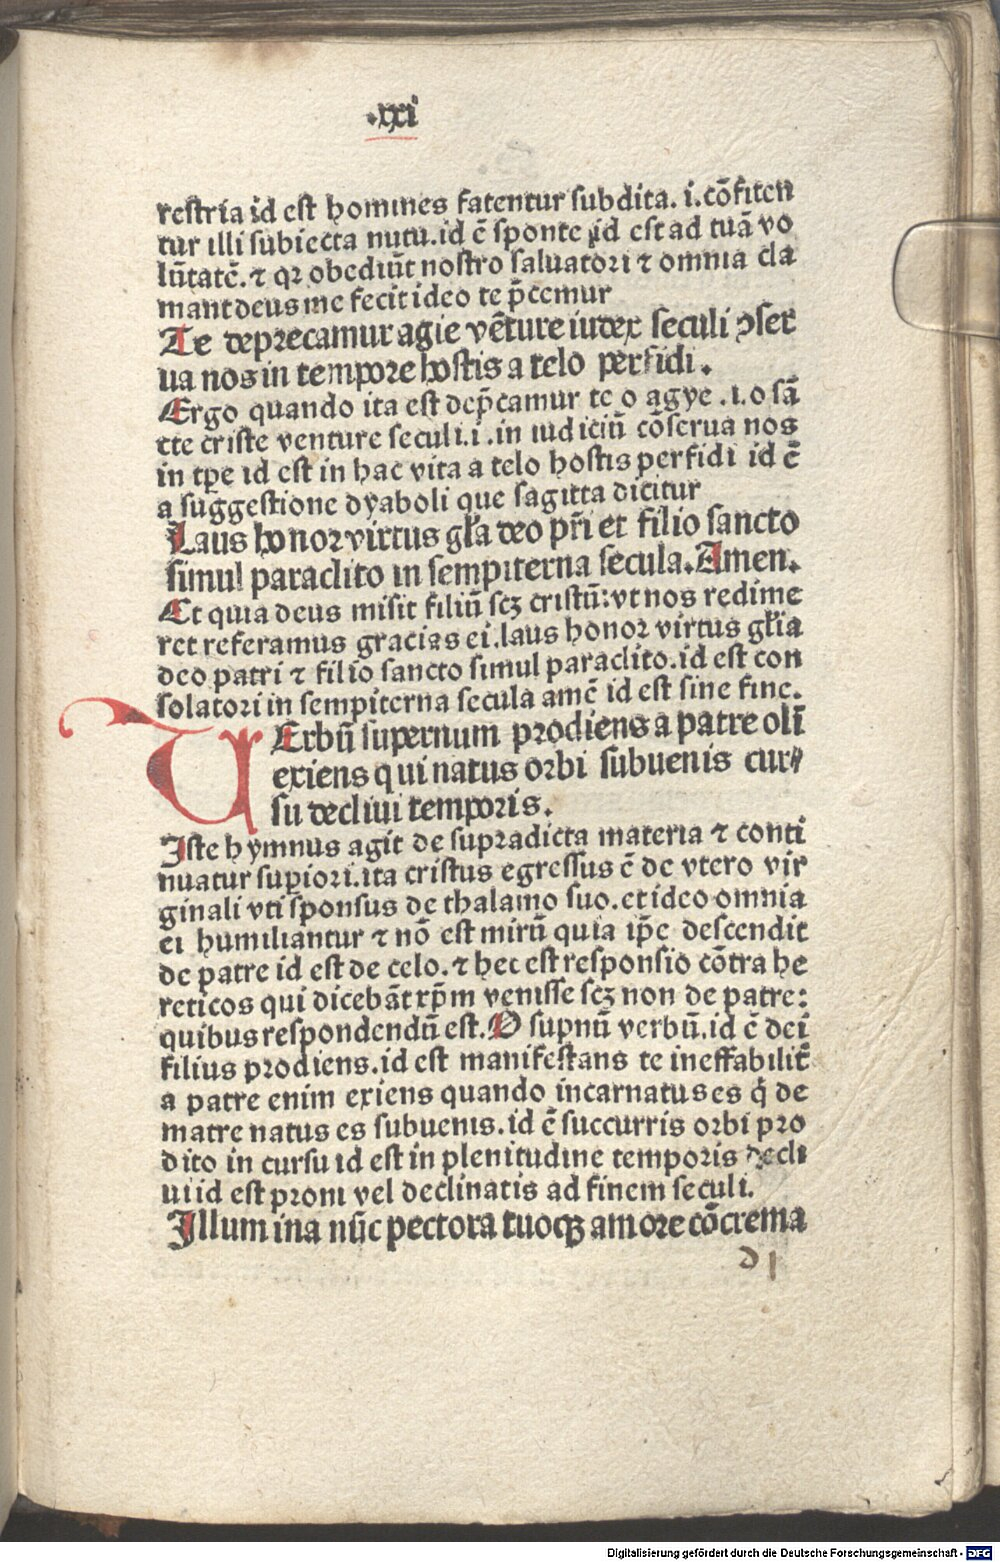 .xxi
restria id est homines fatentur subdita. i. cōfiten
tur illi subiecta nutu. id ē sponte id est ad tuā vo
lūtatē. ⁊ qꝛ obediūt nostro saluatori ⁊ omnia cla
mant deus me fecit ideo te p̄cemur
Te deprecamur agie vēture iudex seculi ꝯser
ua nos in tempore hostis a telo perfidi.
Ergo quando ita est dep̄camur te o agye .i. o sā
cte criste venture seculi. i. in iudiciū cōserua nos
in tp̄e id est in hac vita a telo hostis perfidi id ē
a suggestione dyaboli que sagitta dicitur
Laus honor virtus gl̄a deo pr̄i et filio sancto
simul paraclito in sempiterna secula. Amen.
Et quia deus misit filiū scꝫ cristū: vt nos redime
ret referamus gracias ei. laus honor virtus gl̄ia
deo patri ⁊ filio sancto simul paraclito. id est con
solatori in sempiterna secula amē id est sine fine.
VErbū supernum prodiens a patre oli
exiens qui natus orbi subuenis cur⸗
su decliui temporis.
Iste hymnus agit de supradicta materia ⁊ conti
nuatur supiori. ita cristus egressus ē de vtero vir
ginali vti sponsus de thalamo suo. et ideo omnia
ei humiliantur ⁊ nō est mirū quia ip̄e descendit
de patre id est de celo. ⁊ hec est responsio cōtra he
reticos qui dicebāt xp̄m venisse scꝫ non de patre:
quibus respondendū est. O supnū verbū. id ē dei
filius prodiens. id est manifestans te ineffabilit̄
a patre enim exiens quando incarnatus es q̇ de
matre natus es subuenis. id ē succurris orbi pro
dito in cursu id est in plenitudine temporis decli
ui id est proni vel declinatis ad finem seculi.
Illumina nūc pectora tuoqꝫ amore cōcrema
d1
Digitalisierung gefördert durch die Deutsche Forschungsgemeinschaft - DFG